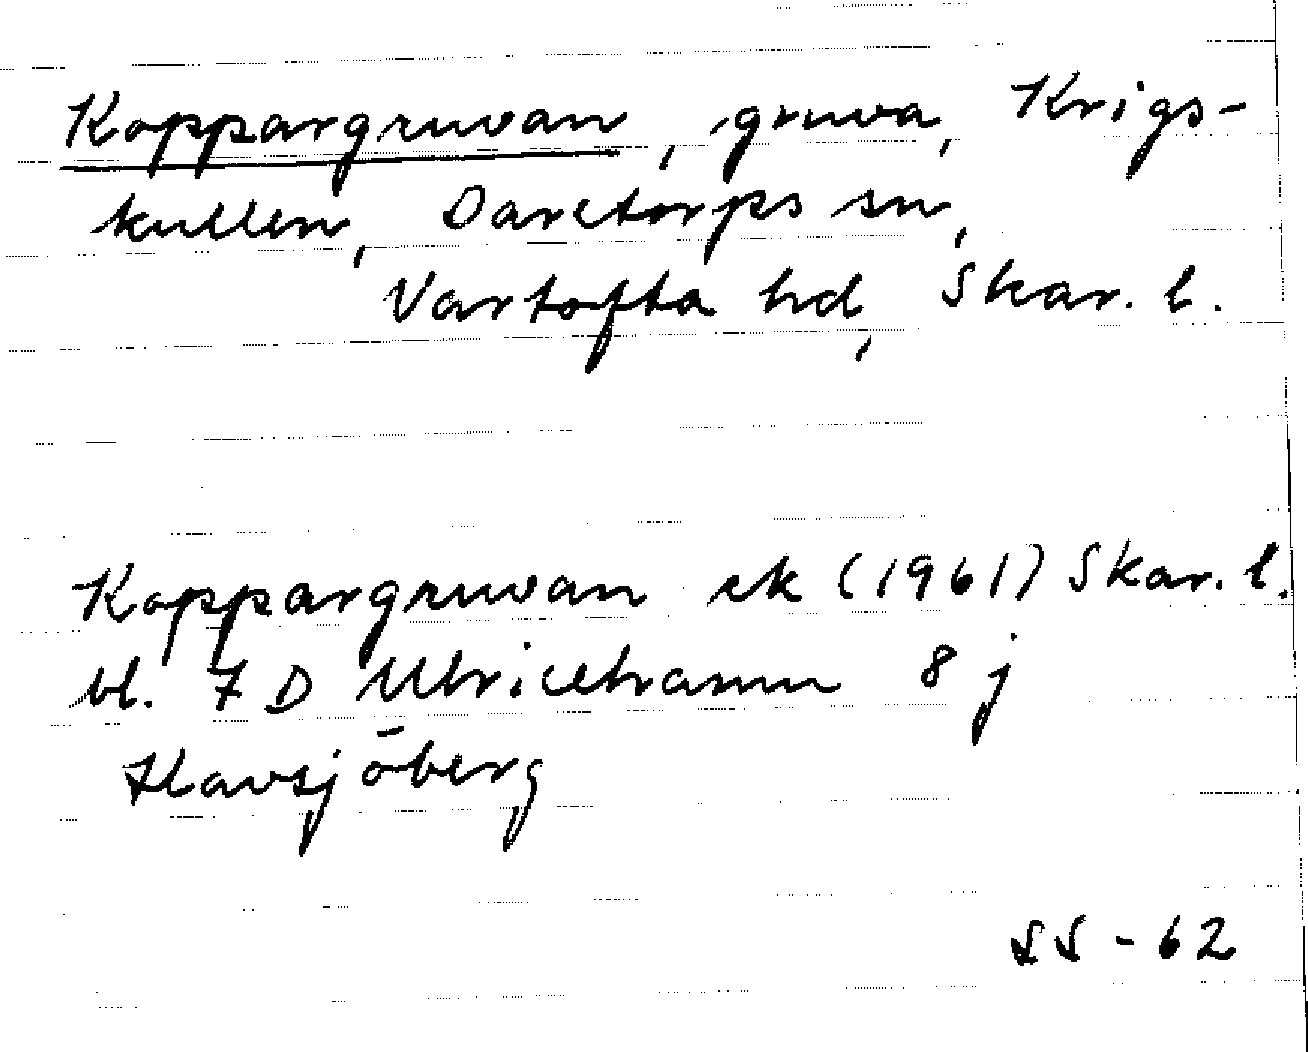 Koppargruvan, gruva, Krigs-
kullen, Daretorps sn,
Vartofta hd, Skar. l.
Koppargruvan ek (1961) Skar. l.
bl. 7 D Ulricehamn 8 j
Havsjöberg
SS - 62